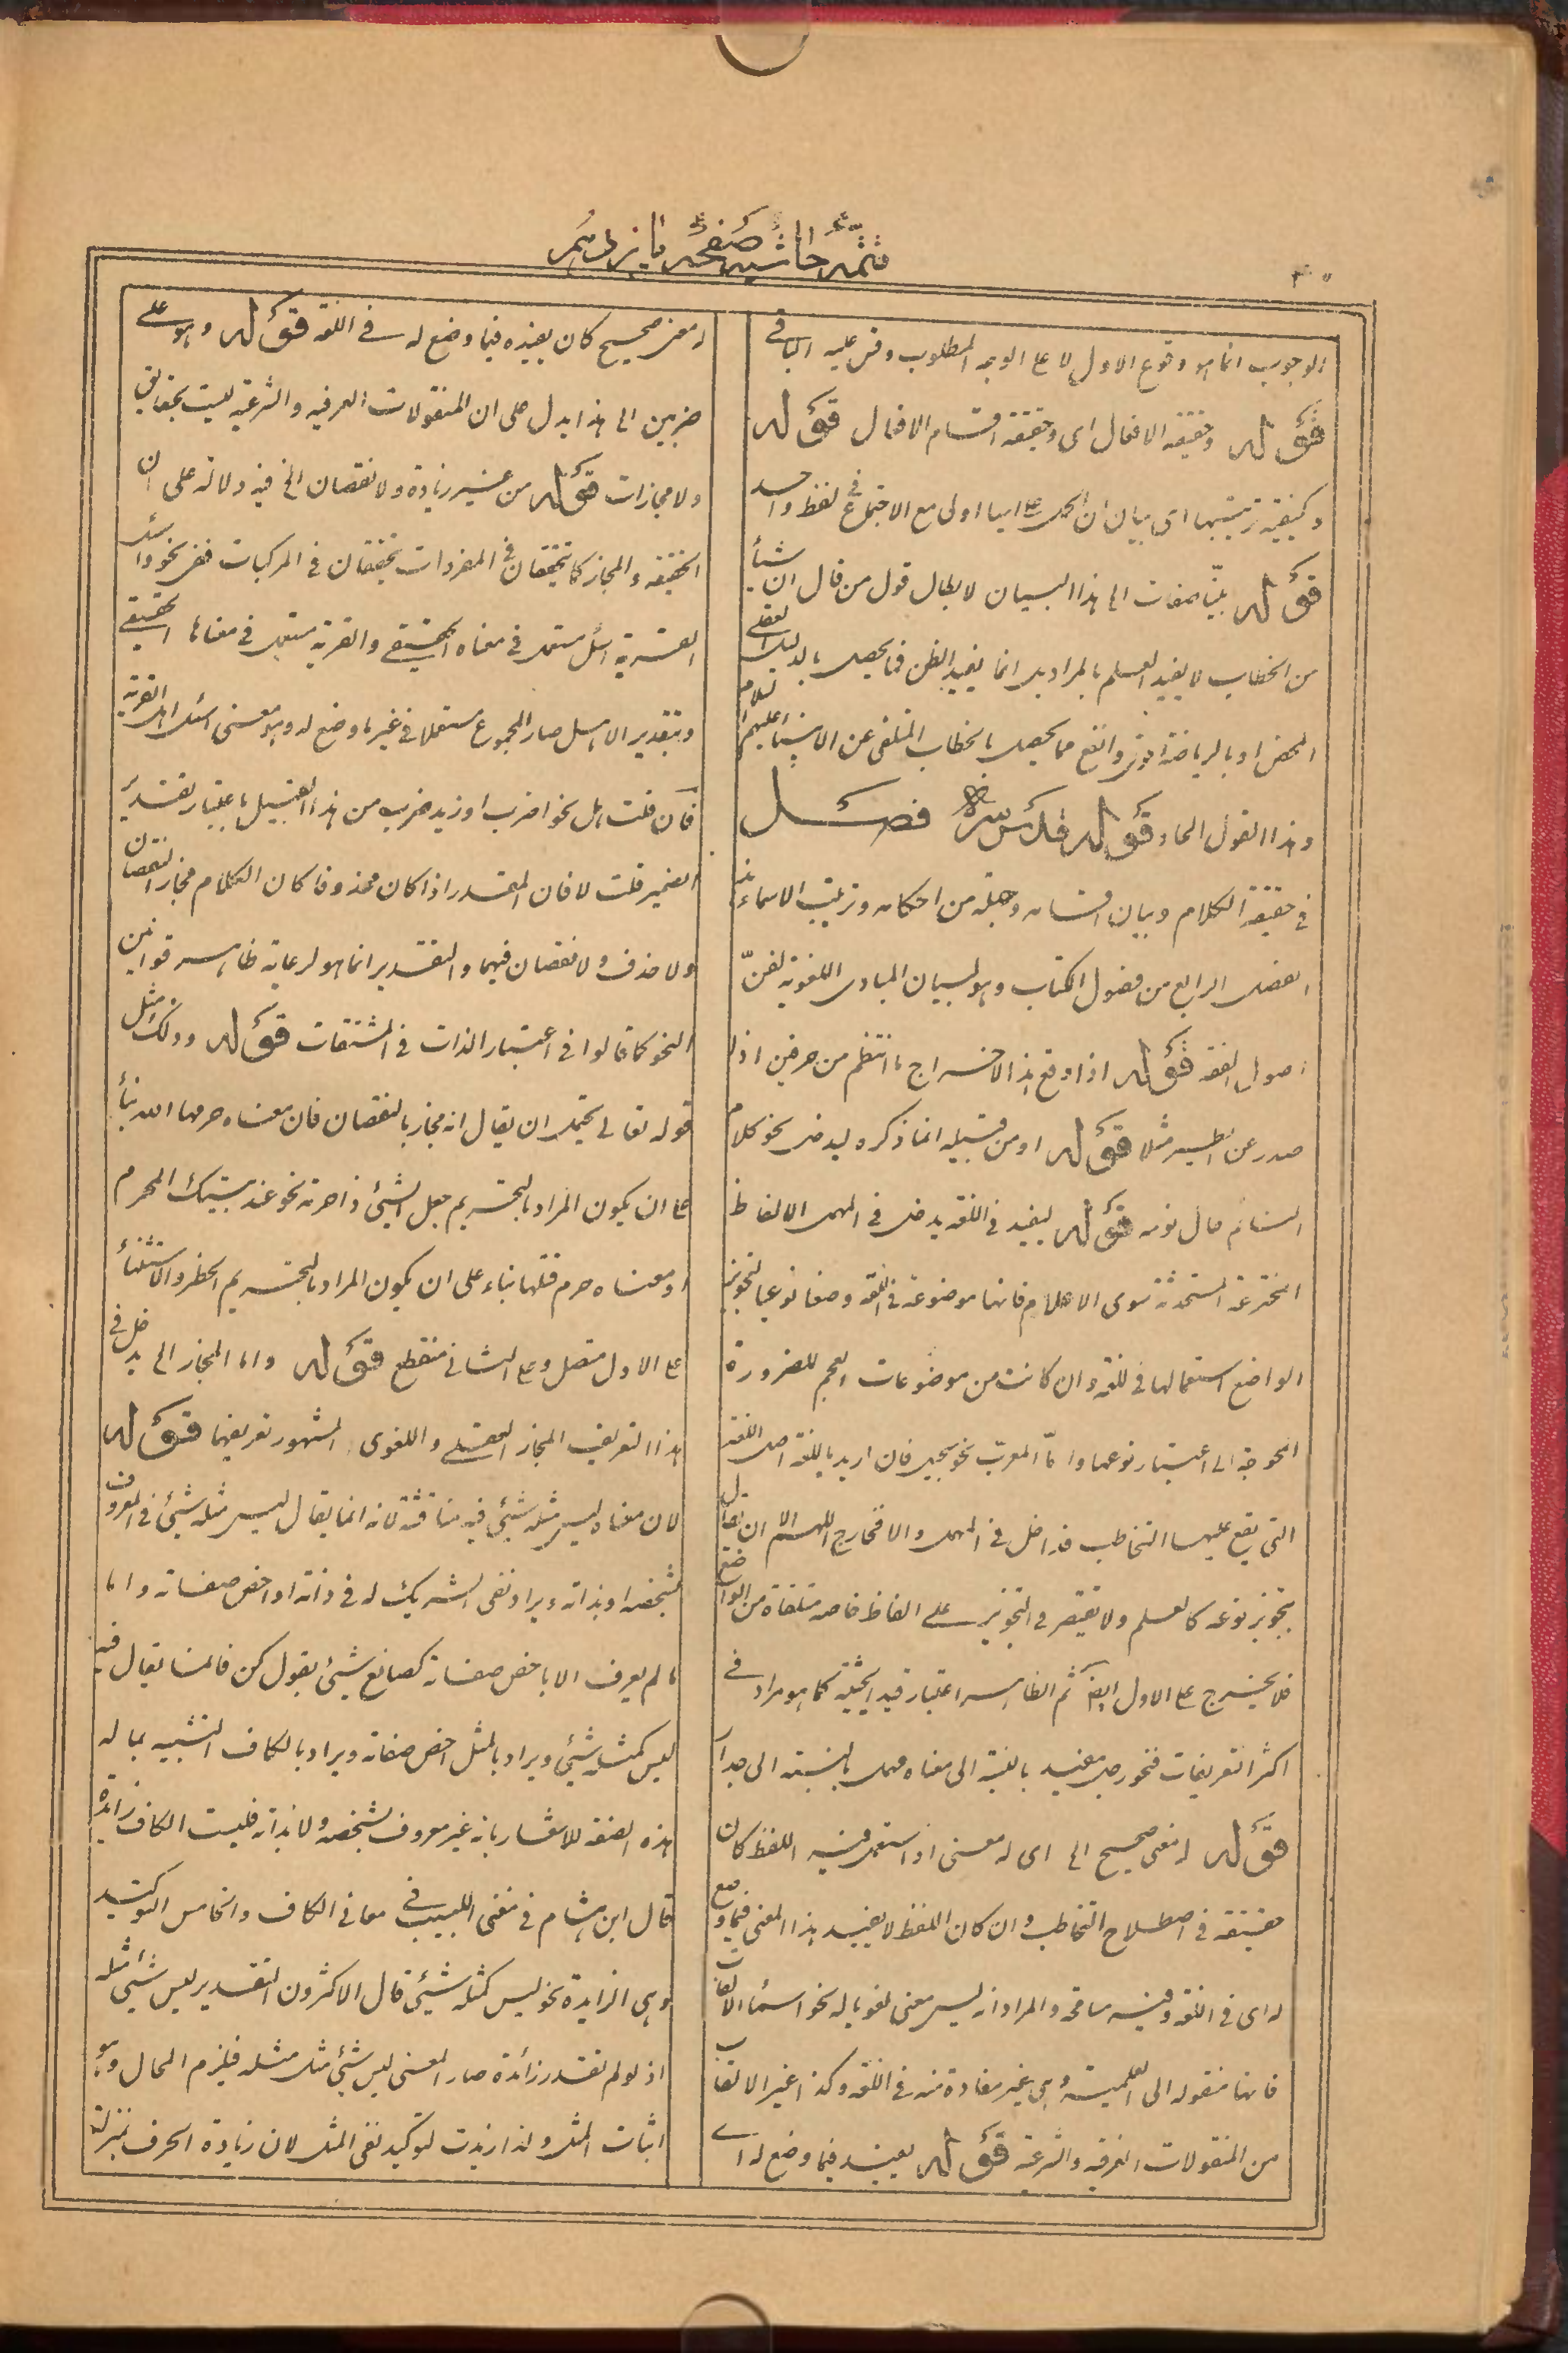 تتمّهٔ حاشیهٔ صفحهٔ پانزدهم
الوجوب انما هو وقوع الاول لا على الوجه المطلوب وقس عليه الباقى
قوله وحقيقة الافعال اى وحقيقة اقسام الافعال قوله
وكيفية ترتيبها اى بيان ان الحمل على ايها اولى مع الاجتماع فى لفظ واحد
قوله بيّنا صفات الخ هذا البيان لابطال قول من قال ان شيأ
من الخطاب لا يفيد العلم بالمراد بل انما يفيد الظن فما يحصل بالدليل العقلى
المحض او بالرياضة اوثق وانفع مما يحصل بالخطاب المتلقى عن الانبياء عليهم السلام
وهذا القول الحاد قوله قدس سره فصل
فى حقيقة الكلام وبيان اقسامه وجملة من احكامه وترتيب الاسماء هذا
الفصل الرابع من فصول الكتاب وهو لبيان المبادى اللغوية لفنّ
اصول الفقه قوله اذا وقع هذا لاخراج ما انتظم من حرفين اذا
صدر عن الطير مثلا قوله او من قبيله انما ذكره ليدخل نحو كلام
النائم حال نومه قوله ليفيد فى اللغة يدخل فى المهمل الالفاظ
المخترعة المستحدثة سوى الاعلام فانها موضوعة فى اللغة وضعا نوعيا لتجويز
الواضع استعمالها فى اللغة وان كانت من موضوعات العجم للضرورة
المحوجة الى اعتبار نوعها واما المعرب نحو سجيل فان اريد باللغة اصل اللغة
التى يقع عليها التخاطب فداخل فى المهمل والا فخارج اللهم الا ان يقال
بتجويز نوعه كالعلم ولا يقتصر فى التجويز على الفاظ خاصة متلقاة من الواضع
فلا يخرج على الاول ايضا ثم الظاهر اعتبار قيد الحيثية كما هو مراد فى
اكثر التعريفات فنحو رجل مفيد بالنسبة الى معناه مهمل بالنسبة الى جدار
قوله له معنى صحيح الخ اى له معنى اذا استعمل فيه اللفظ كان
حقيقة فى اصطلاح التخاطب وان كان اللفظ لا يفيد هذا المعنى فيما وضع
له اى فى اللغة وفيه مسامحة والمراد انه ليس معنى لغويا له نحو اسماء الالقاب
فانها منقولة الى العلمية وهى غير مفادة منه فى اللغة وكذا غير الالقاب
من المنقولات العرفية والشرعية قوله يفيد فيما وضع له اى
له معنى صحيح كان يفيده فيما وضع له فى اللغة قوله وهو على
ضربين الخ هذا يدل على ان المنقولات العرفية والشرعية ليست بحقايق
ولا مجازات قوله من غير زيادة ولا نقصان الخ فيه دلالة على ان
الحقيقة والمجاز كما تتحققان فى المفردات تتحققان فى المركبات ففى نحو واسئل
القرية اسئل مستعمل فى معناه الحقيقى والقرية مستعمل فى معناها الحقيقى
وبتقدير الاهل صار المجموع مستعملا فى غير ما وضع له وهو معنى اسئل اهل القرية
فان قلت هل نحو اضرب او زيد ضرب من هذا القبيل باعتبار تقدير
الضمير قلت لا فان المقدر اذا كان محذوفا كان الكلام مجاز النقصان
ولا حذف ولا نقصان فيهما والتقدير انما هو لرعاية ظاهر قوانين
النحو كما قالوا فى اعتبار الذات فى المشتقات قوله وذلك مثل
قوله تعالى يحتمل ان يقال انه مجاز بالنقصان فان معناه حرمها الله بناء
على ان يكون المراد بالتحريم جعل الشيئ ذا حرمة نحو عند بيتك المحرم
او معناه حرم قتلها بناء على ان يكون المراد بالتحريم الحظر والاستثناء
على الاول متصل وعلى الثانى منقطع قوله واما المجاز الخ يدخل فى
هذا التعريف المجاز العقلى واللغوى المشهور تعريفهما قوله
لان معناه ليس مثله شيئ فيه مناقشة لانه انما يقال ليس مثله شيئ فى المعروف
بشخصه او بذاته ويراد نفى الشريك له فى ذاته او اخص صفاته واما
ما لم يعرف الا باخص صفاته كصانع شيئ بقول كن فانما يقال فيه
ليس كمثله شيئ ويراد بالمثل اخص صفاته ويراد بالكاف التشبيه بما له
هذه الصفة للاشعار بانه غير معروف بشخصه ولا بذاته فليست الكاف زايدة
قال ابن هشام فى مغنى اللبيب فى معانى الكاف والخامس التوكيد
وهى الزايدة نحو ليس كمثله شيئ قال الاكثرون التقدير ليس شيئ مثله
اذ لو لم تقدر زائدة صار المعنى ليس شيئ مثل مثله فيلزم المحال وهو
اثبات المثل ولذا زيدت لتوكيد نفى المثل لان زيادة الحرف بمنزلة